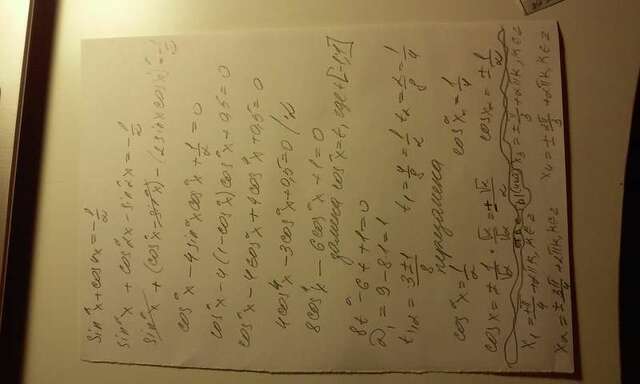 sin²x + cos4x = -1/2
sin²x + cos²2x - sin²2x = -1/2
sin²x + (cos²x - sin²x)² - (2sinxcosx)² = -1/2
cos⁴x - 4sin²xcos²x + 1/2 = 0
cos⁴x - 4(1-cos²x)cos²x + 0,5 = 0
cos²x - 4cos²x + 4cos⁴x + 0,5 = 0
4cos⁴x - 3cos²x + 0,5 = 0 /·2
8cos⁴x - 6cos²x + 1 = 0
замена cos²x = t, где t [-1;1]
8t² - 6t + 1 = 0
D₁ = 9 - 8·1 = 1
t₁,₂ = (3±1)/8 t₁ = 4/8 = 1/2 t₂ = 2/8 = 1/4
перезамена
cos²x = 1/2 cos²x = 1/4
cosx = ± 1/√2 · √2/√2 = ± √2/2 cosx₂ = ± 1/2
x₁ = ± π/4 + 2πk, k ∈ z x₃ = ± π/3 + 2πk, k ∈ z
x₂ = ± 3π/4 + 2πk, k ∈ z x₄ = ± 2π/3 + 2πk, k ∈ z